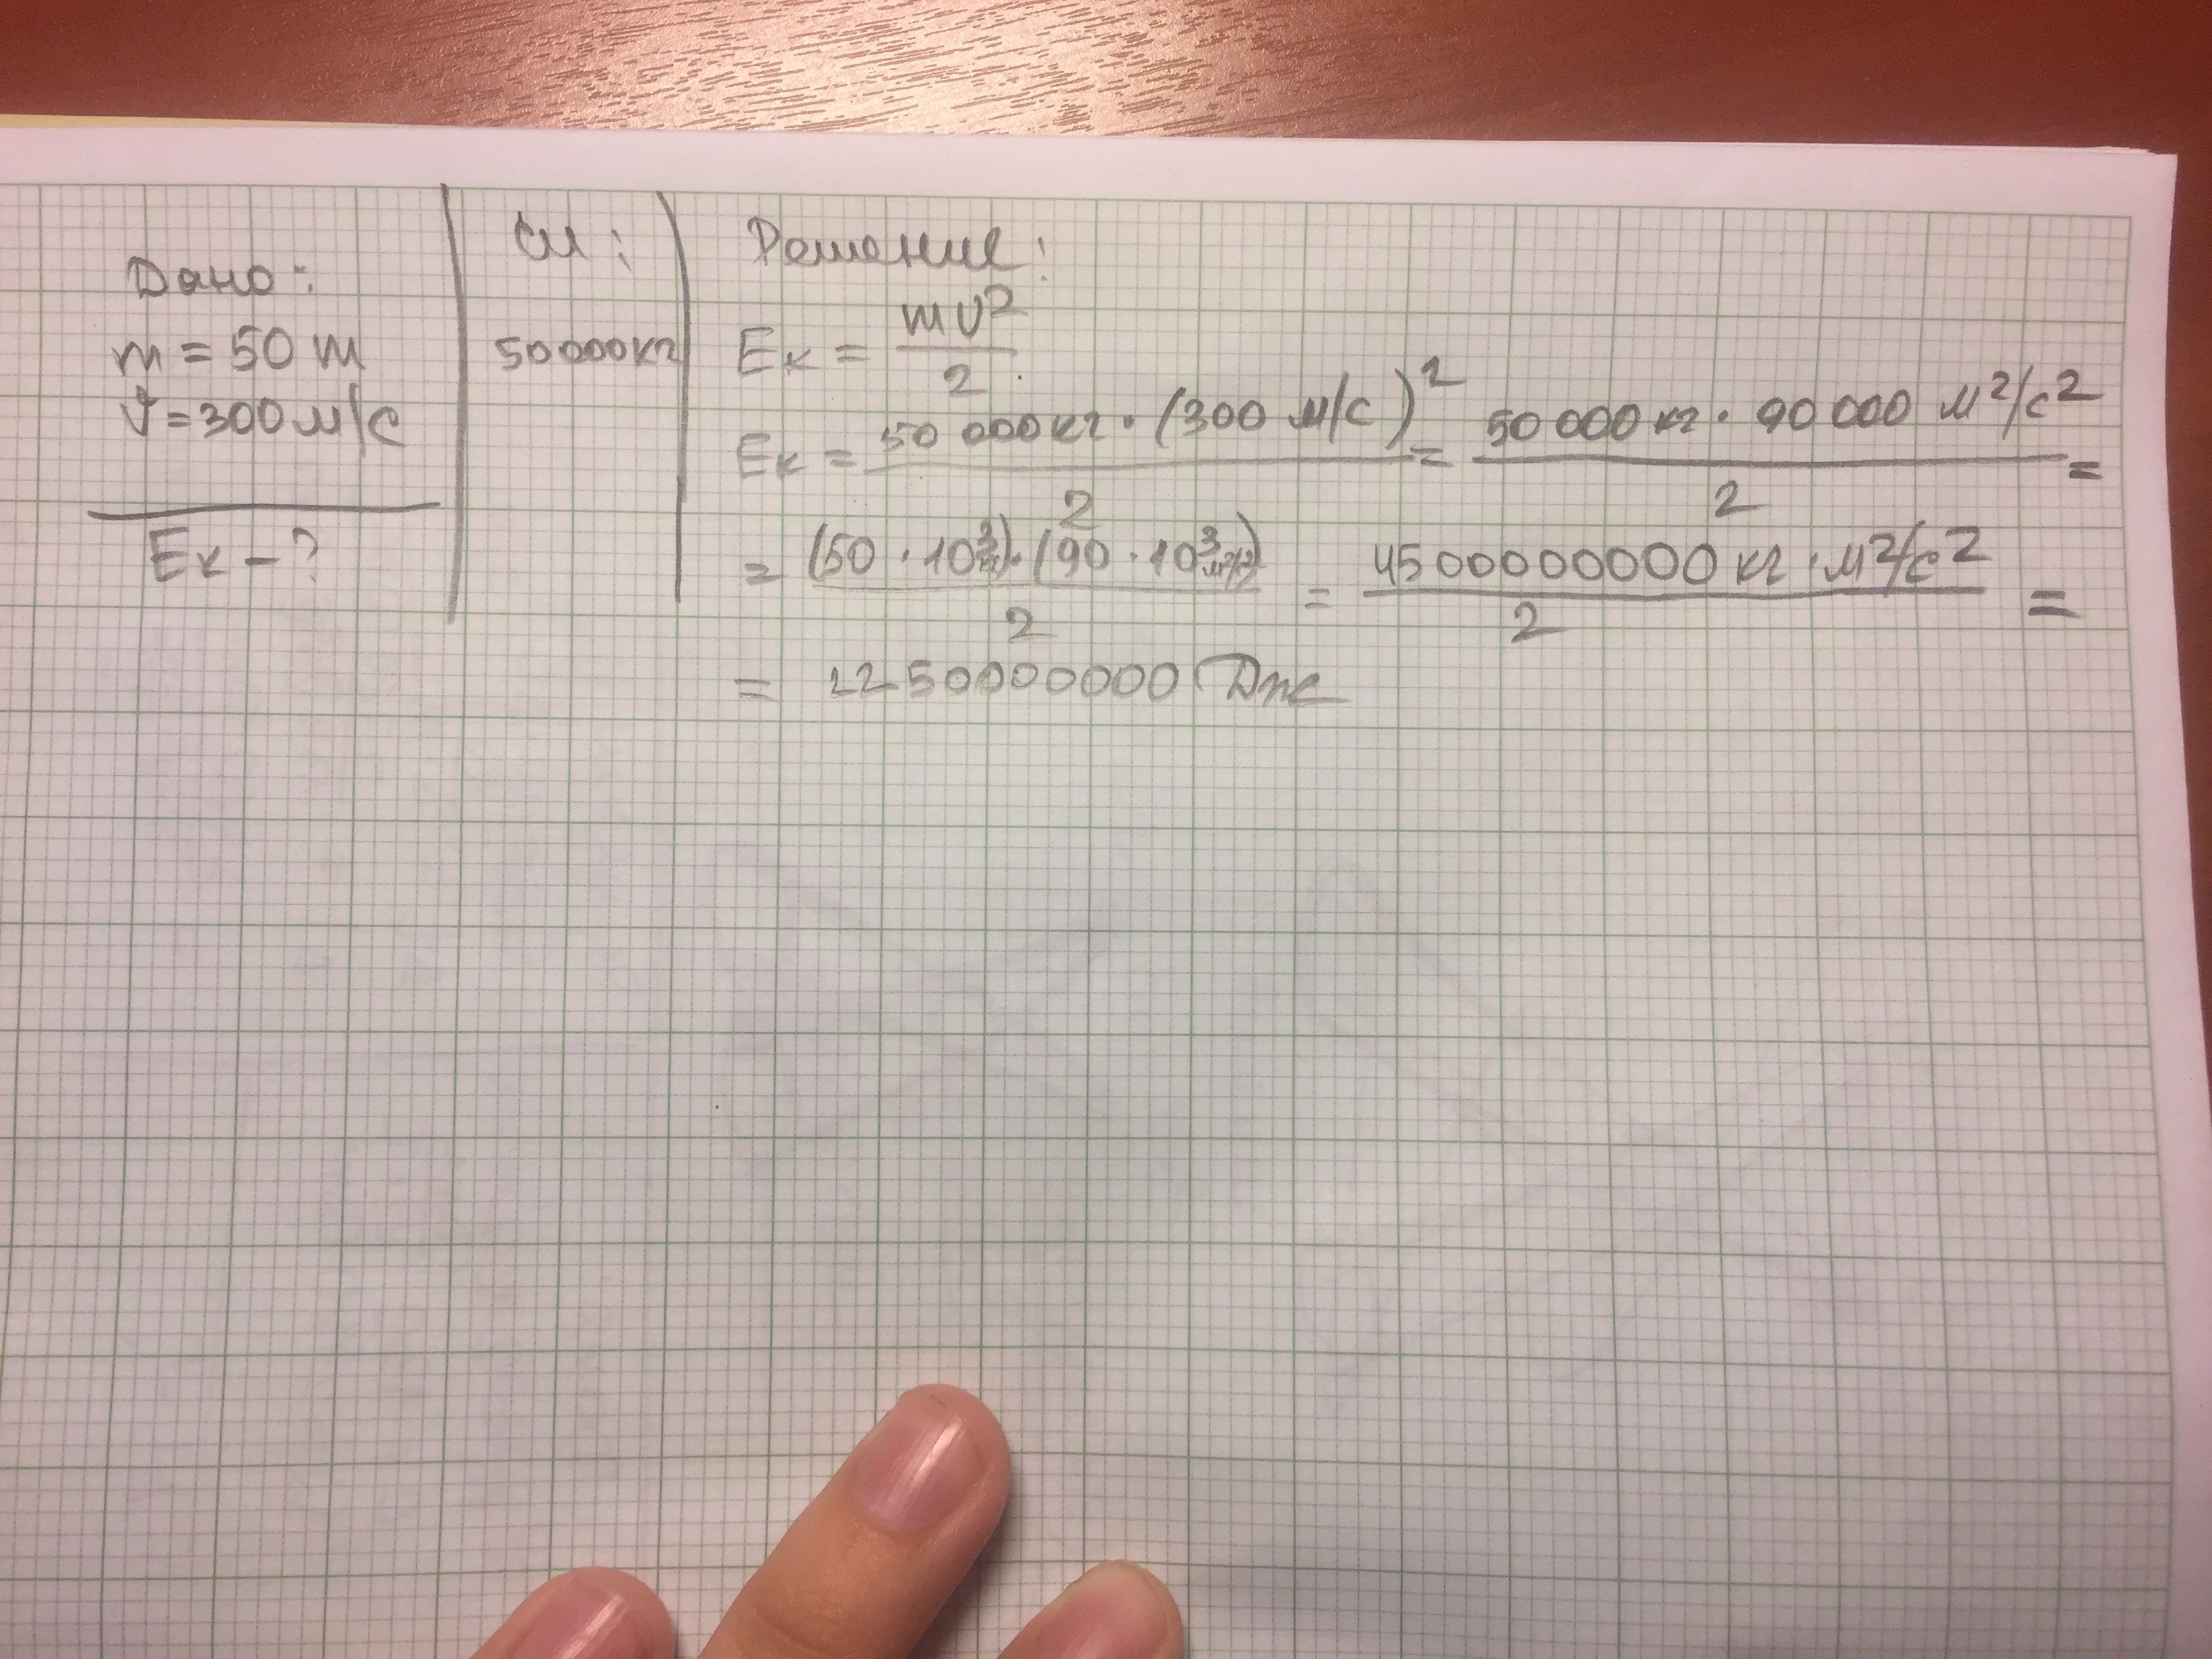 Дано:
m = 50 т
v = 300 м/с
Ек – ?
СИ:
50000кг
Решение:
Ек = mv²/2
Ек = 50 000кг · (300 м/с)²/2 = 50 000 кг · 90 000 м²/с²/2 =
= (50 · 10³кг) · (90 · 10³м²/с²)/2 = 4500000000 кг · м²/с²/2 =
= 2250000000 Дж